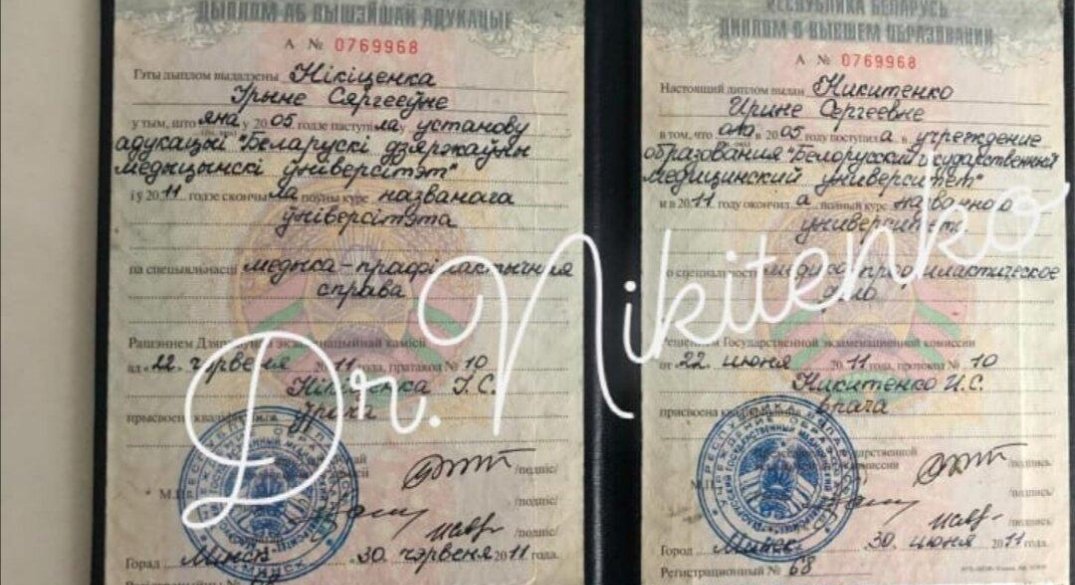 ДЫПЛОМ АБ ВЫШЭЙШАЙ АДУКАЦЫІ
А № 0769968
Гэты дыплом выдадзены Нікіценка
Ірыне Сяргееўне
у тым, што яна у 2005 годзе паступіла ў установу
адукацыі "Беларускі дзяржаўны
медыцынскі ўніверсітэт"
і ў 2011 годзе скончыла поўны курс названага
ўніверсітэта
па спецыяльнасці медыка-прафілактычная
справа
Рашэннем Дзяржаўнай экзаменацыйнай камісіі
ад «22» чэрвеня 2011 года, пратакол № 10
Нікіценка І.С.
прысвоена кваліфікацыя
ўрача
/подпіс/
М.П.
/подпіс/
/подпіс/
Горад Мінск 30 чэрвеня 2011 года.
РЭСПУБЛИКА БЕЛАРУСЬ
ДИПЛОМ О ВЫСШЕМ ОБРАЗОВАНИИ
А № 0769968
Настоящий диплом выдан Никитенко
Ирине Сергеевне
в том, что она в 2005 году поступила в учреждение
образования "Белорусский государственный
медицинский университет"
и в 2011 году окончила полный курс названного
университета
по специальности медико-профилактическое
дело
Решением Государственной экзаменационной комиссии
от «22» июня 2011 года, протокол № 10
Никитенко И.С.
присвоена квалификация
врача
/подпись/
М.П.
/подпись/
/подпись/
Город Минск 30 июня 2011 года.
Регистрационный № 68
Dr. Nikitenko